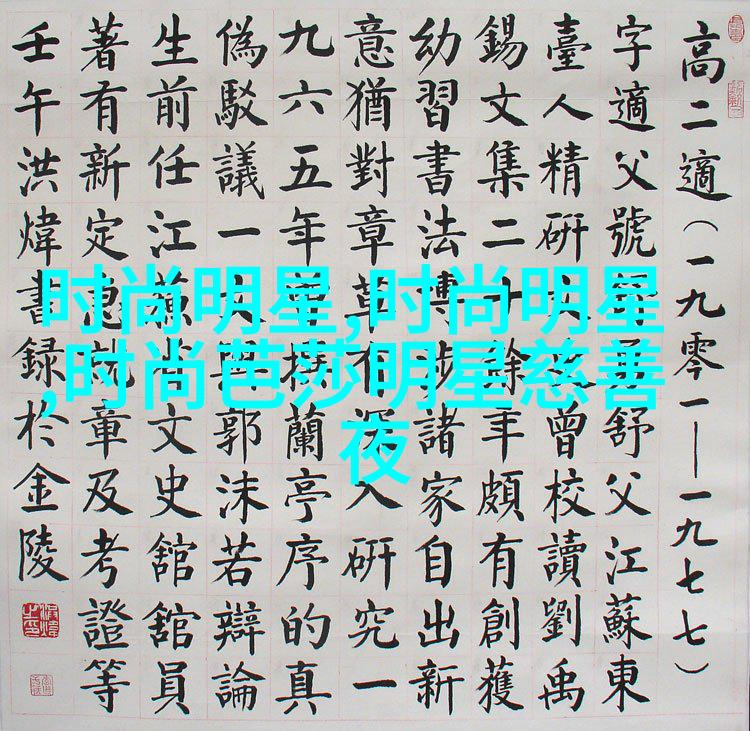 高二適（一九零一——一九七七）
字適父號舒父江蘇東
臺人精研文史曾校讀劉禹
錫文集二十餘年頗有創獲
幼習書法博涉諸家自出新
意猶對章草有深入研究一
九六五年曾撰蘭亭序的真
偽駁議一文與郭沫若辯論
生前任江蘇省文史館館員
著有新定急就章及考證等
壬午洪煒書録於金陵
时尚明星,时尚明星
,时尚芭莎明星慈善
夜